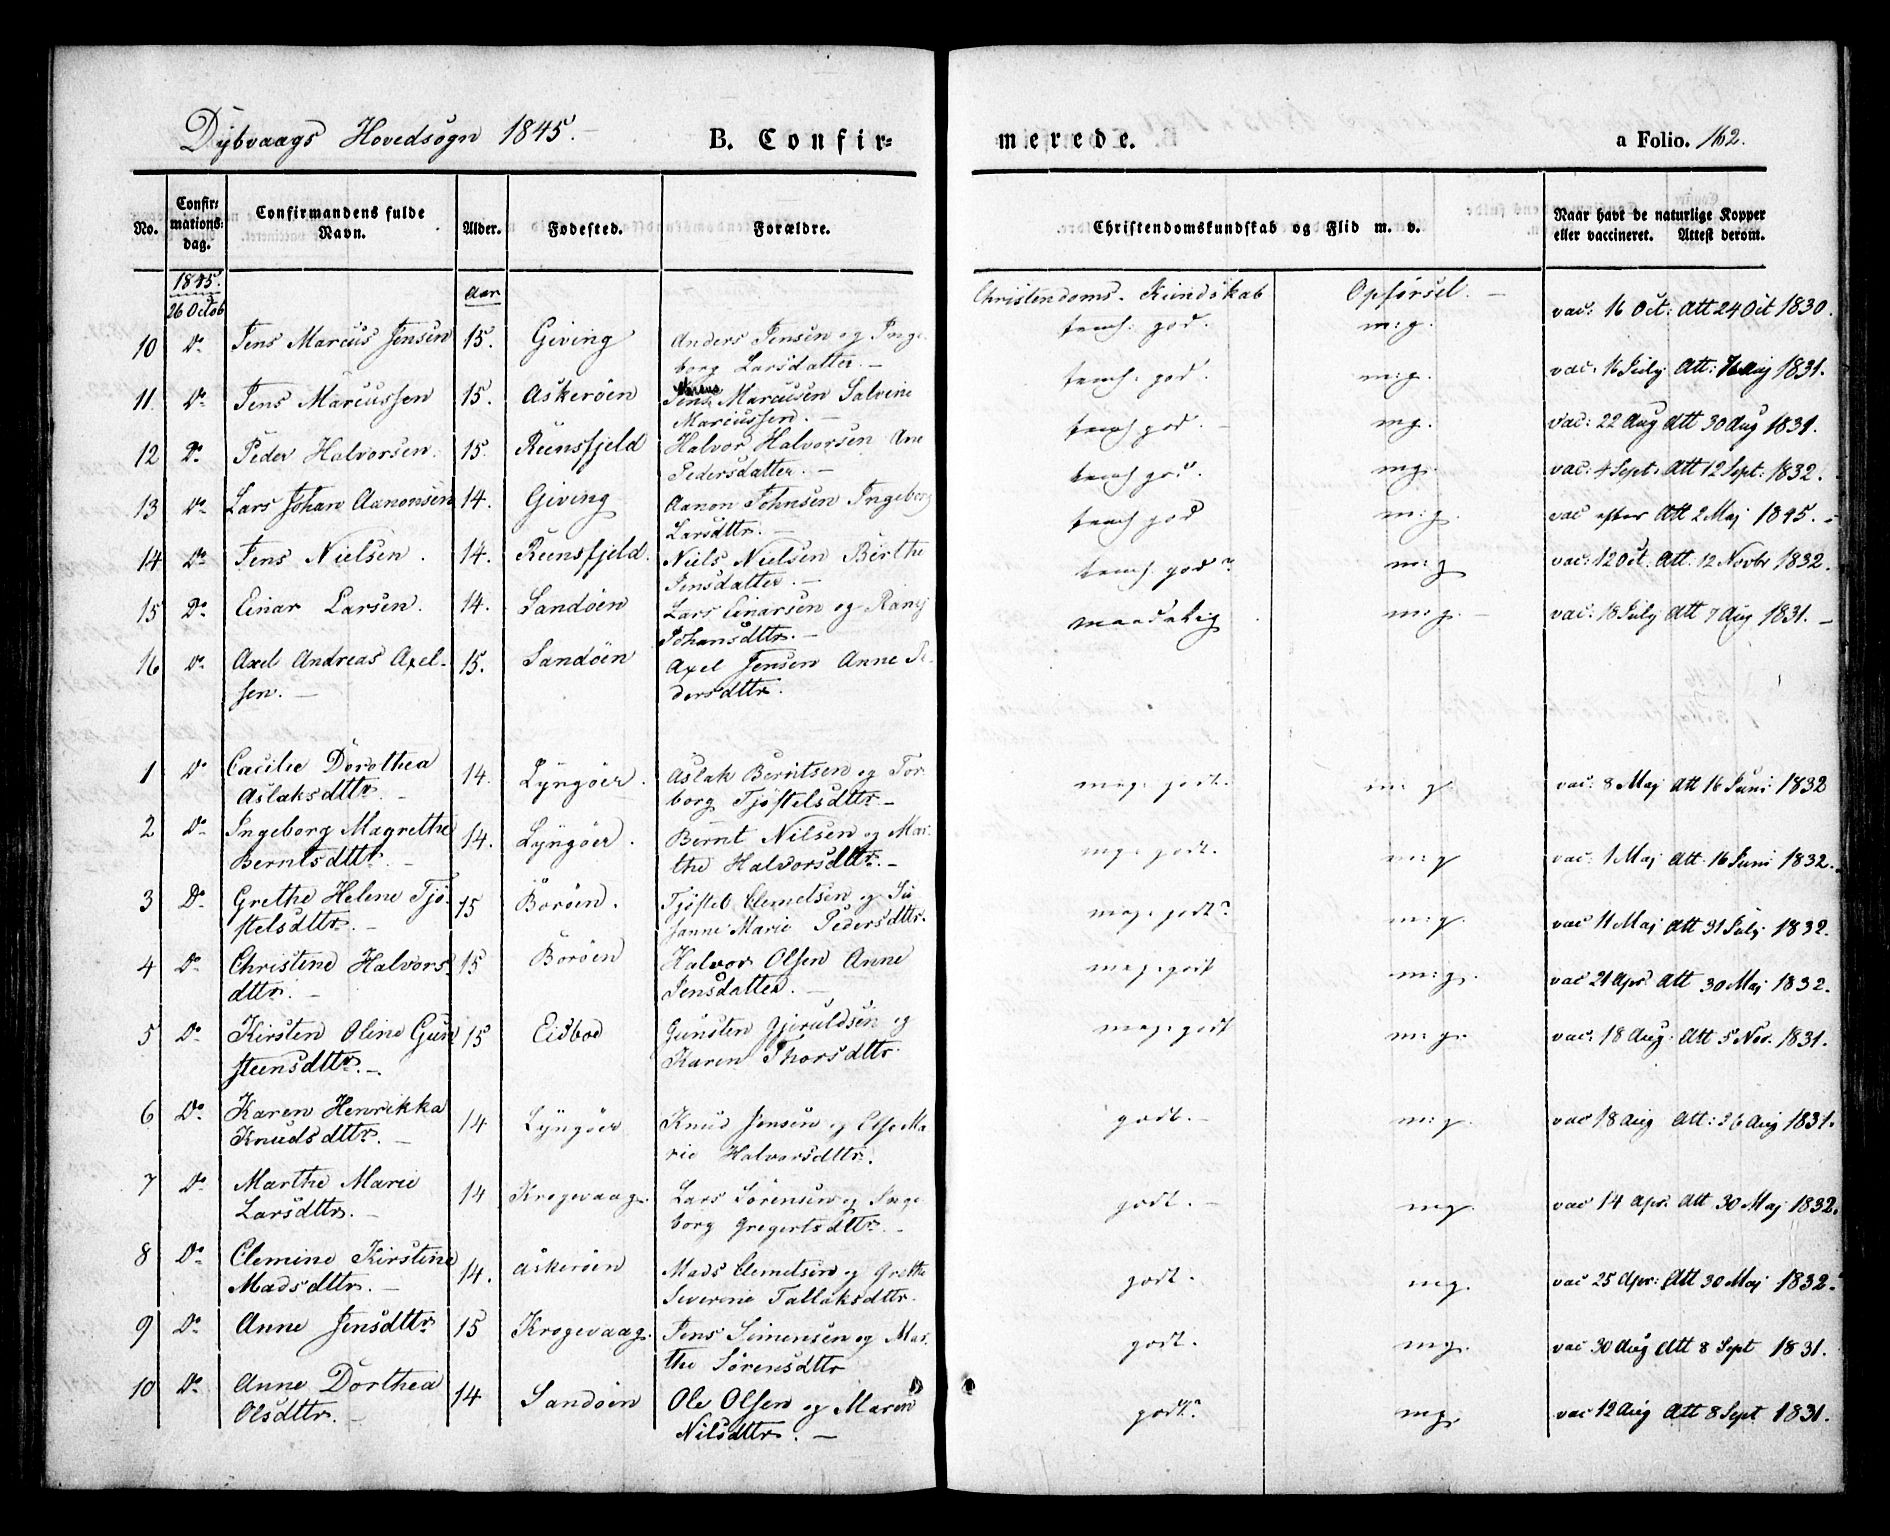 Dybvaags Hovedsogn 1845. -
B. Confirmerede.
a Folio. 162.
No. | Confirmations-dag. | Confirmandens fulde Navn. | Alder. | Fødested. | Forældre. | Christendomskundskab og Flid m. v. | Naar havt de naturlige Kopper eller vaccineret. Attest derom.
1845. 26 Octob | Aar | Christendoms-Kundskab | Opførsel. -
10 | Do | Jens Marcus Jensen | 15. | Giving | Anders Jensen og Inge-
borg Larsdatter. - | temh: god. | m:g. | vac: 16 Oct: Att 24 Oct 1830.
11. | Do | Jens Marcussen | 15. | Askerøen | Marcusen Salvine
Marcussen. - | temh: god. | m:g. | vac: 16 July Att: Maj 1831.
12 | Do | Peder Halvorsen. | 15. | Reensfjeld | Halvor Halvorsen Ane
Pedersdatter. - | temh god. - | mg. | vac: 22 Aug Att 30 Aug 1831.
13 | Do | Lars Johan Aanonsen | 14. | Giving | Aanon Johnsen Ingeborg
Larsdttr. - | temh god. | mg. | vac: 4 Sept. Att 12 Sept: 1832.
14 | Do | Jens Nielsen. | 14. | Reensfjeld. | Niels Nielsen Birthe
Jensdatter. - | temh god | m:g. | vac efter Att 2 Maj 1845. -
15 | Do | Einar Larsen. | 14. | Sandøen | Lars Einarsen og
Johansdttr. - | temh. god | m:g | vac: 12 Oct. Att. 12 Novbr 1832.
16 | Do | Axel Andreas Axel-
sen. - | 15. | Sandøen | Axel Jensen Anne Pe-
dersdttr. | maadelig | m:g. - | vac: 18 July Att 7 Aug 1831. -
1 | Do | Cæcilie Dorothea
Aslaksdttr. - | 14. | Lyngøer. | Aslak Berntsen og Tor-
borg Tjøstelsdttr - | meg: godt. | m: g. | vac: 8 Maj Att 16 Juni 1832
2 | Do | Ingeborg Magrethe
Berntsdttr. - | 14. | Lyngøer. | Bernt Nilsen og Mar-
the Halvorsdttr. - | meg: godt. | m:g | vac: 1 Maj Att 16 Juni 1832.
3 | Do | Grethe Helene Tjø-
stelsdttr. - | 15 | Borøen. | Tjøstel Clemetsen og Su
sanne Marie Pedersdttr. | meg: godt | m:g. | vac 11 Maj Att 31 July 1832.
4 | Do | Christine Halvors
dttr. - | 15 | Borøen | Halvor Olsen Anne
Jensdatter. - | meg: godt | m:g. | vac 21 Apr. Att 30 Maj 1832.
5 | Do | Kirsten Oline Gun
steensdttr. - | 15 | Eidboe | Gunsten Gjeruldsen og
Karen Thorsdttr. | meg: godt | m:g. | vac: 18 Aug. Att 5 Nov. 1831.
6 | Do | Karen Henrikka
Knudsdttr. - | 14 | Lyngøer | Knud Jensen og Else Ma
rie Halvorsdttr. | godt. - | m:g. | vac 18 Aug Att: 26 Aug 1831.
7 | Do | Marthe Marie
Larsdttr. - | 14 | Krogevaag. | Lars Sørensen og Inge
borg Gregertsdttr. - | godt. - | mg. | vac 14 Apr. Att 30 Maj 1832.
8 | Do | Clemine Kirstine
Madsdttr. - | 14. | Askerøen | Mads Clemetsen og Grethe
Severine Tallaksdttr. | godt. | mg. | vac 25 Apr: Att 30 Maj 1832.
9 | Do | Anne Jensdttr | 15 | Krogevaag. | Jens Simensen og Mar-
the Sørensdttr | godt. | mg. | vac 30 Aug Att 8 Sept 1831.
10 | Do | Anne Dorthea
Olsdttr. - | 14 | Sandøen | Ole Olsen og Maren
Nilsdttr. - | godt. | mg. | vac 12 Aug Att 8 Sept 1831.